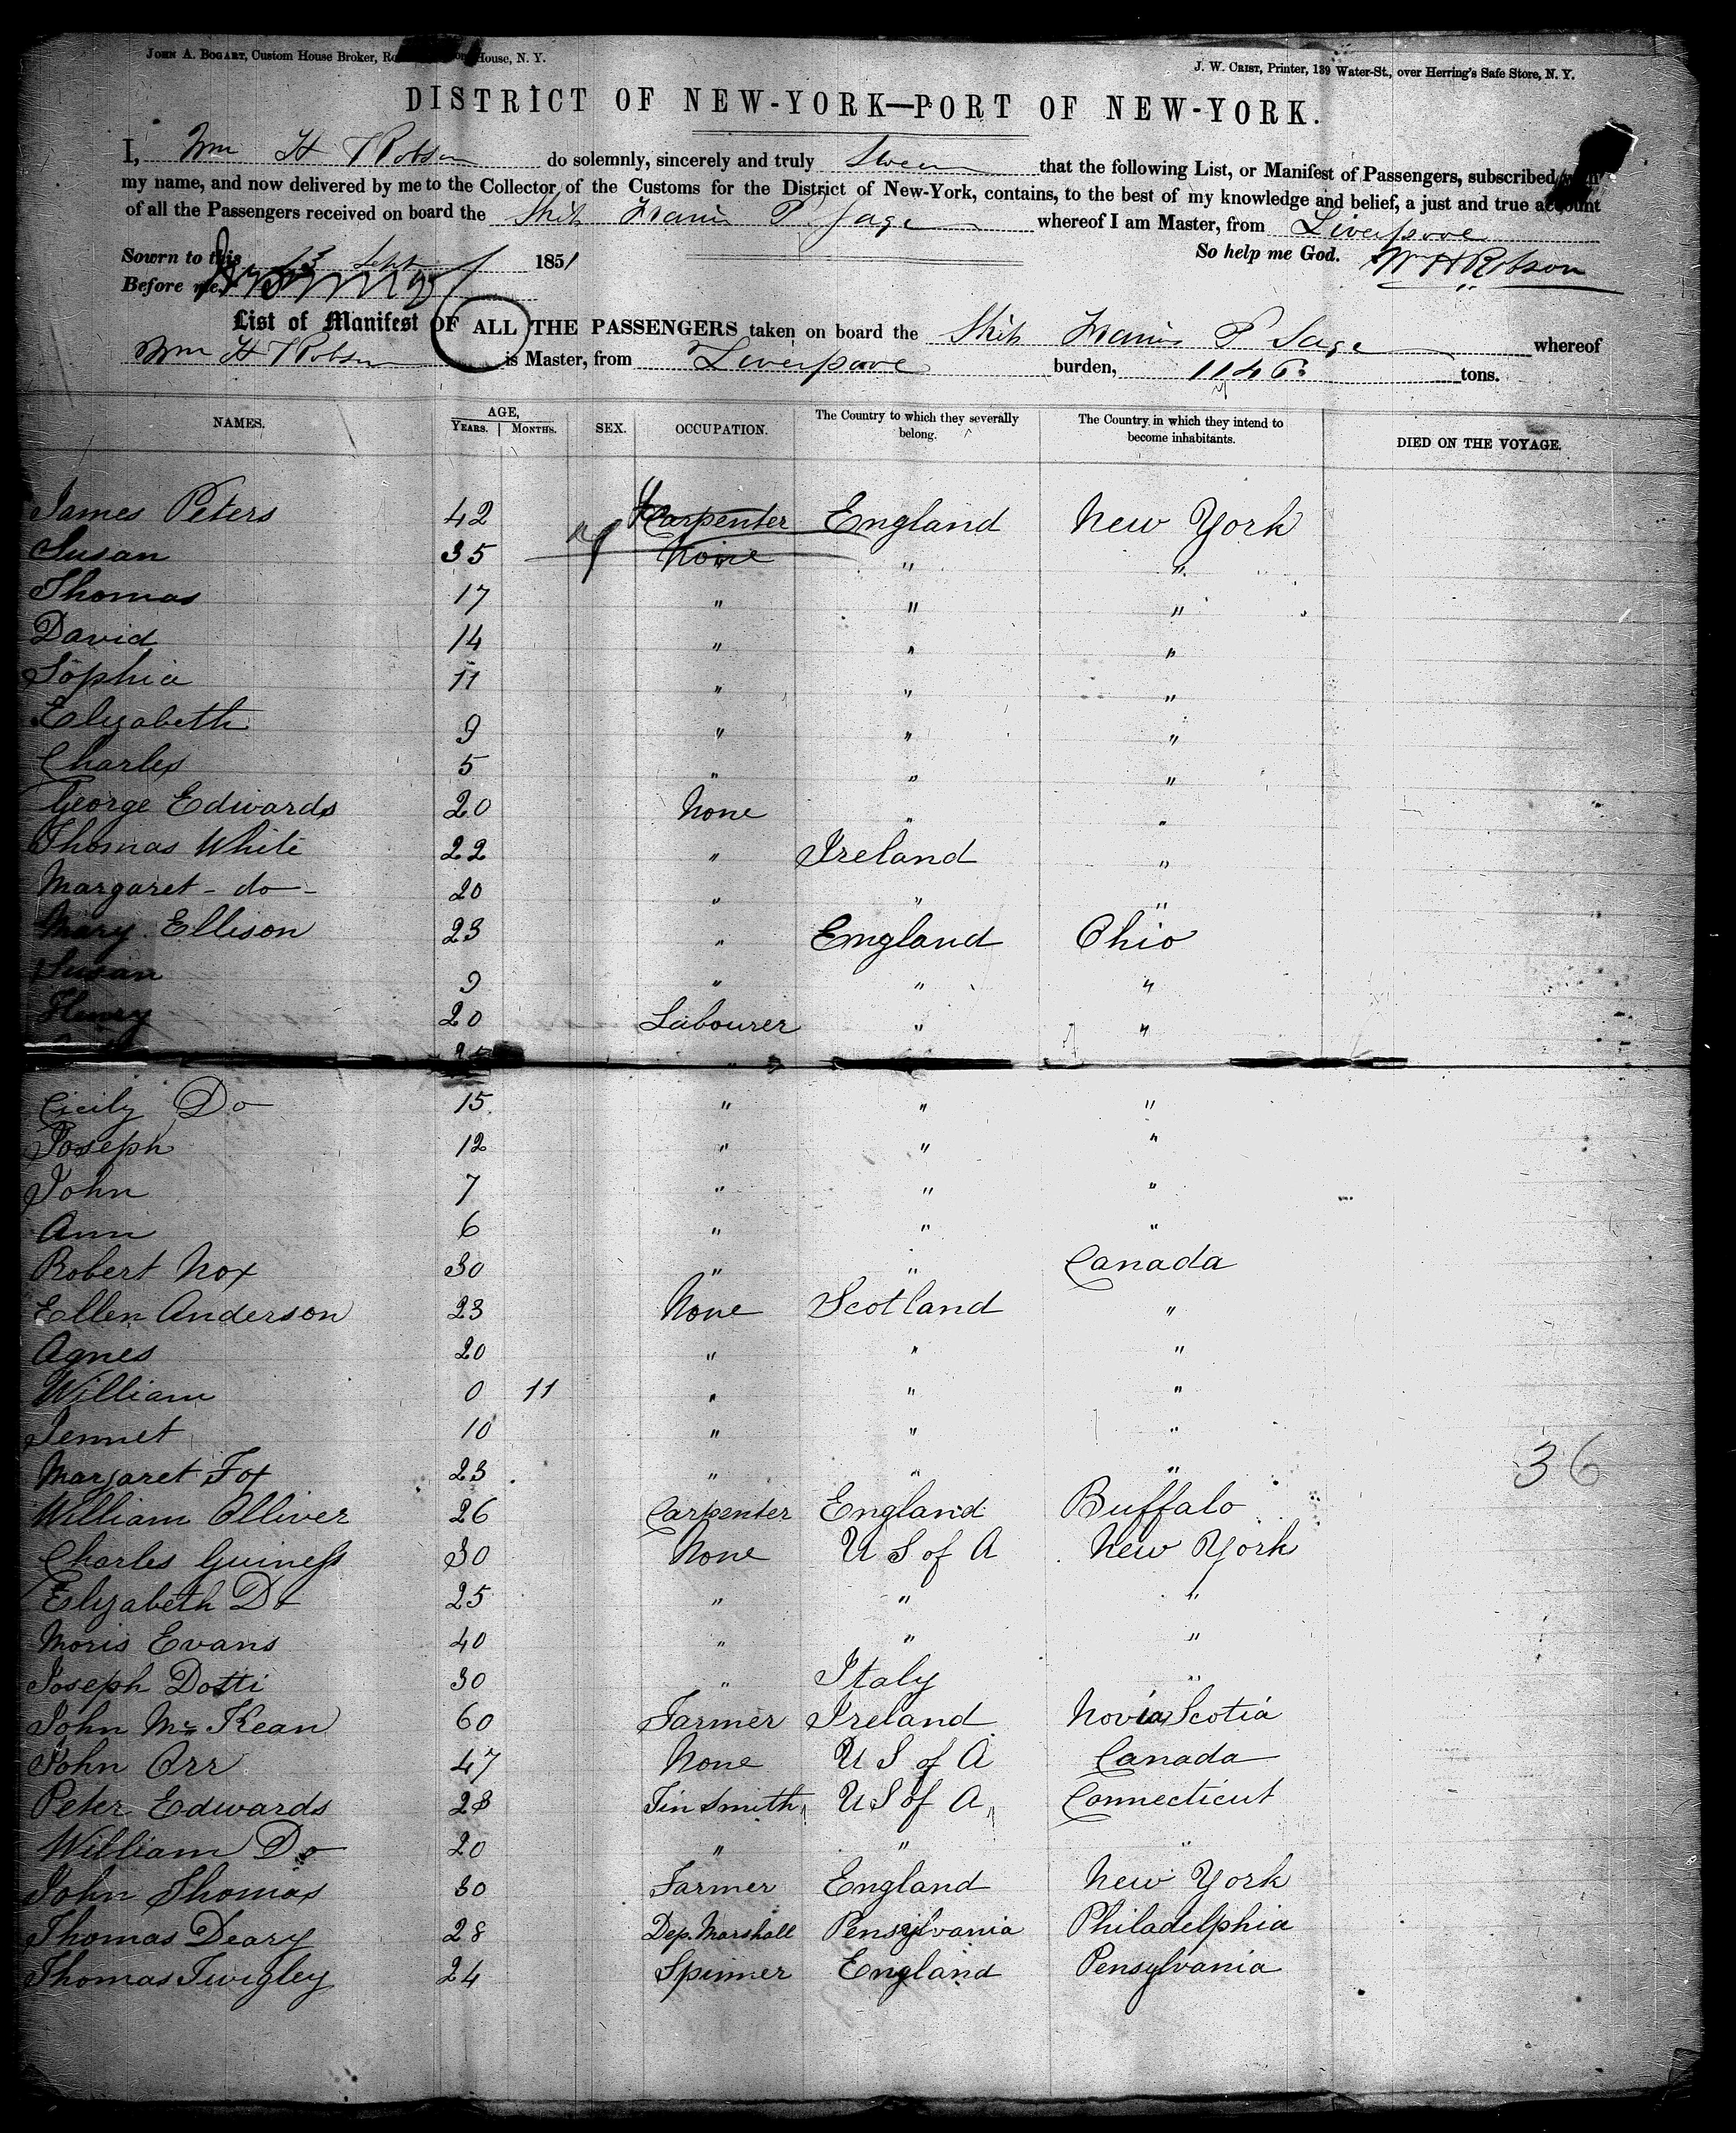 JOHN A. BOGART, Custom House Broker, House, N. Y.
J. W. CRIST, Printer, 139 Water-St., over Herring's Safe Store, N. Y.
DISTRICT OF NEW-YORK—PORT OF NEW-YORK.
I, Wm H Robson do solemnly, sincerely and truly Swear that the following List, or Manifest of Passengers, subscribed with
my name, and now delivered by me to the Collector of the Customs for the District of New-York, contains, to the best of my knowledge and belief, a just and true account
of all the Passengers received on board the Ship P Sage whereof I am Master, from Liverpool
Sowrn to this 13 Sept 1851 So help me God. Wm H Robson
Before me,
List of Manifest OF ALL THE PASSENGERS taken on board the Ship P Sage whereof
Wm H Robson is Master, from Liverpool burden, 1146 tons.
NAMES. AGE, YEARS. MONTHS. SEX. OCCUPATION. The Country to which they severally belong. The Country in which they intend to become inhabitants. DIED ON THE VOYAGE.
James Peters 42 Carpenter England New York
Susan 35 None " "
Thomas 17 " " "
David 14 " " "
Sophia 11 " " "
Elizabeth 9 " " "
Charles 5 " " "
George Edwards 20 None " "
Thomas White 22 " Ireland "
Margaret - do - 20 " " "
Mary Ellison 23 " England Ohio
Susan 9 " " "
Henry 20 Labourer " "
"
Cicily Do 15 " " "
Joseph 12 " " "
John 7 " " "
Ann 6 " " "
Robert Nox 30 " " Canada
Ellen Anderson 23 None Scotland "
Agnes 20 " " "
William 0 11 " " "
Jennet 10 " " "
Margaret Fox 23 " " "
36
William Olliver 26 Carpenter England Buffalo
Charles Guiness 30 None U S of A New York
Elizabeth Do 25 " " "
Moris Evans 40 " " "
Joseph Dotti 30 " Italy "
John Mc Kean 60 Farmer Ireland Novia Scotia
John Orr 47 None U S of A Canada
Peter Edwards 28 Tin Smith U S of A Connecticut
William Do 20 " " "
John Thomas 30 Farmer England New York
Thomas Deary 28 Dep. Marshall Pensylvania Philadelphia
Thomas Twigley 24 Spinner England Pensylvania